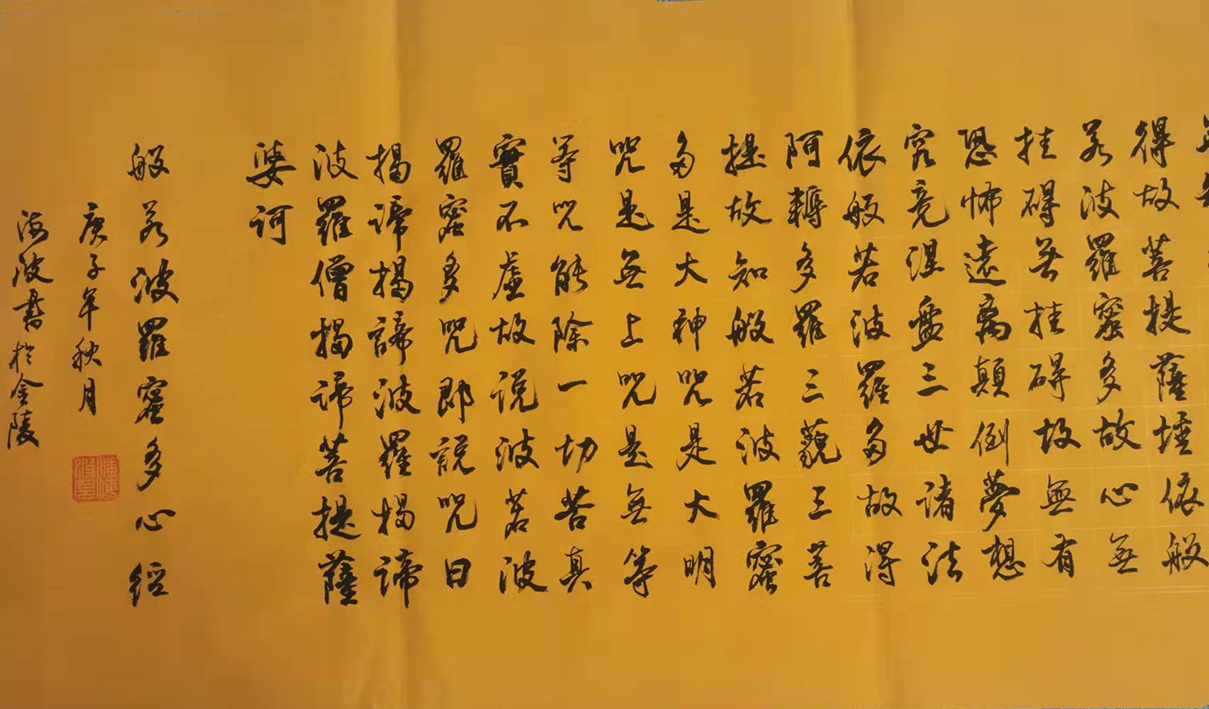 得故菩提薩埵依般
若波羅蜜多故心無
挂碍无挂碍故無有
恐怖遠离顛倒夢想
究竟涅盤三世諸法
依般若波羅多故得
阿耨多羅三藐三菩
提故知般若波羅蜜
多是大神咒是大明
咒是無上咒是無等
等咒能除一切苦真
實不虛故说波若波
羅蜜多咒即說咒曰
揭諦揭諦波羅揭諦
波羅僧揭諦菩提薩
婆訶
般若波羅蜜多心經
庚子年秋月
海波書於金陵